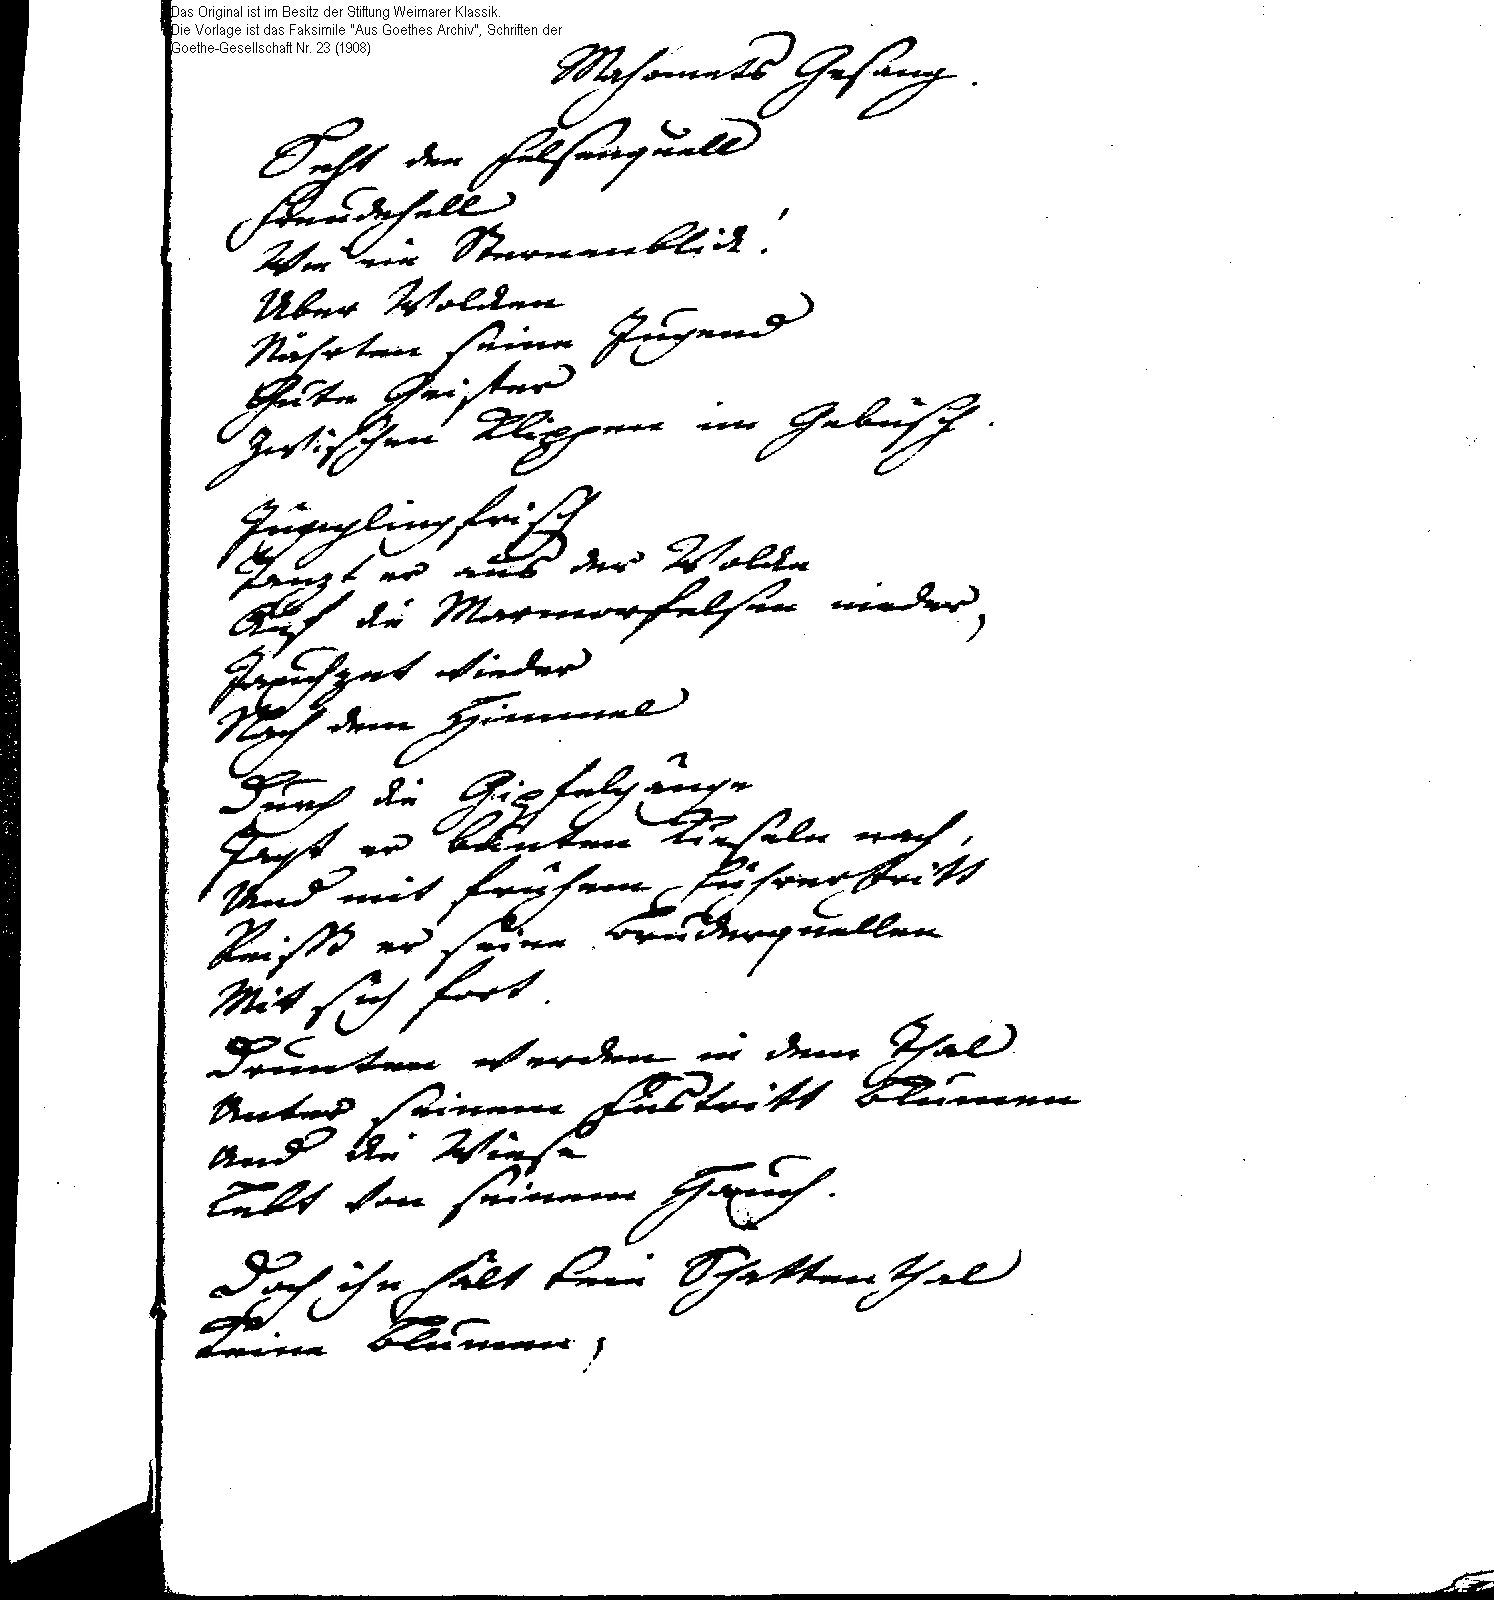 Das Original ist im Besitz der Stiftung Weimarer Klassik.
Die Vorlage ist das Faksimile "Aus Goethes Archiv", Schriften der
Goethe-Gesellschaft Nr. 23 (1908)
Mahomets Gesang.
Seht den Felsenquell
Freudehell
Wie ein Sternenblick!
Uber Wolcken
Nährten seine Jugend
Gute Geister
Zwischen Klippen im Gebüsch.
Jünglingfrisch
Tanzt er aus der Wolcke
Auf die Marmorfelsen nieder,
Jauchzet wieder
Nach dem Himmel
Durch die Gipfelgänge
Jagt er bunten Kieseln nach,
Und mit frühem Führertritt
Reisst er seine Bruderquellen
Mit sich fort.
Drunten werden in dem Thal
Unter seinem Fustritt Blumen
Und die Wiese
Lebt von seinem Hauch.
Doch ihn hält kein Schattenthal
Keine Blumen,